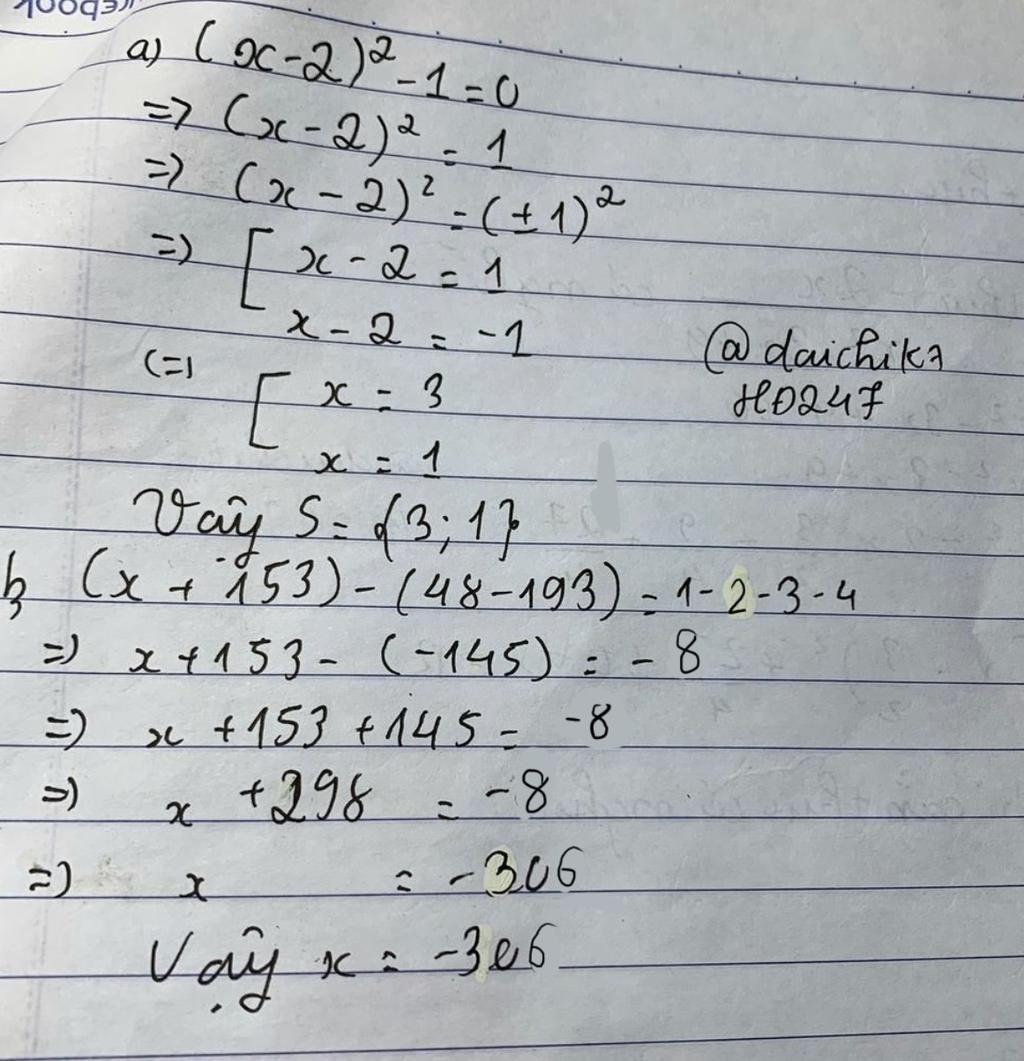 a) (x-2)² -1 = 0
=> (x-2)² = 1
=> (x-2)² = (±1)²
=> [ x-2 = 1
x-2 = -1
<=> [ x = 3
x = 1
@daichika
HD247
Vậy S = {3; 1}
b, (x + 153) - (48-193) = 1-2-3-4
=> x+153- (-145) = -8
=> x +153 +145 = -8
=> x +298 = -8
=> x = -306
Vậy x = -306